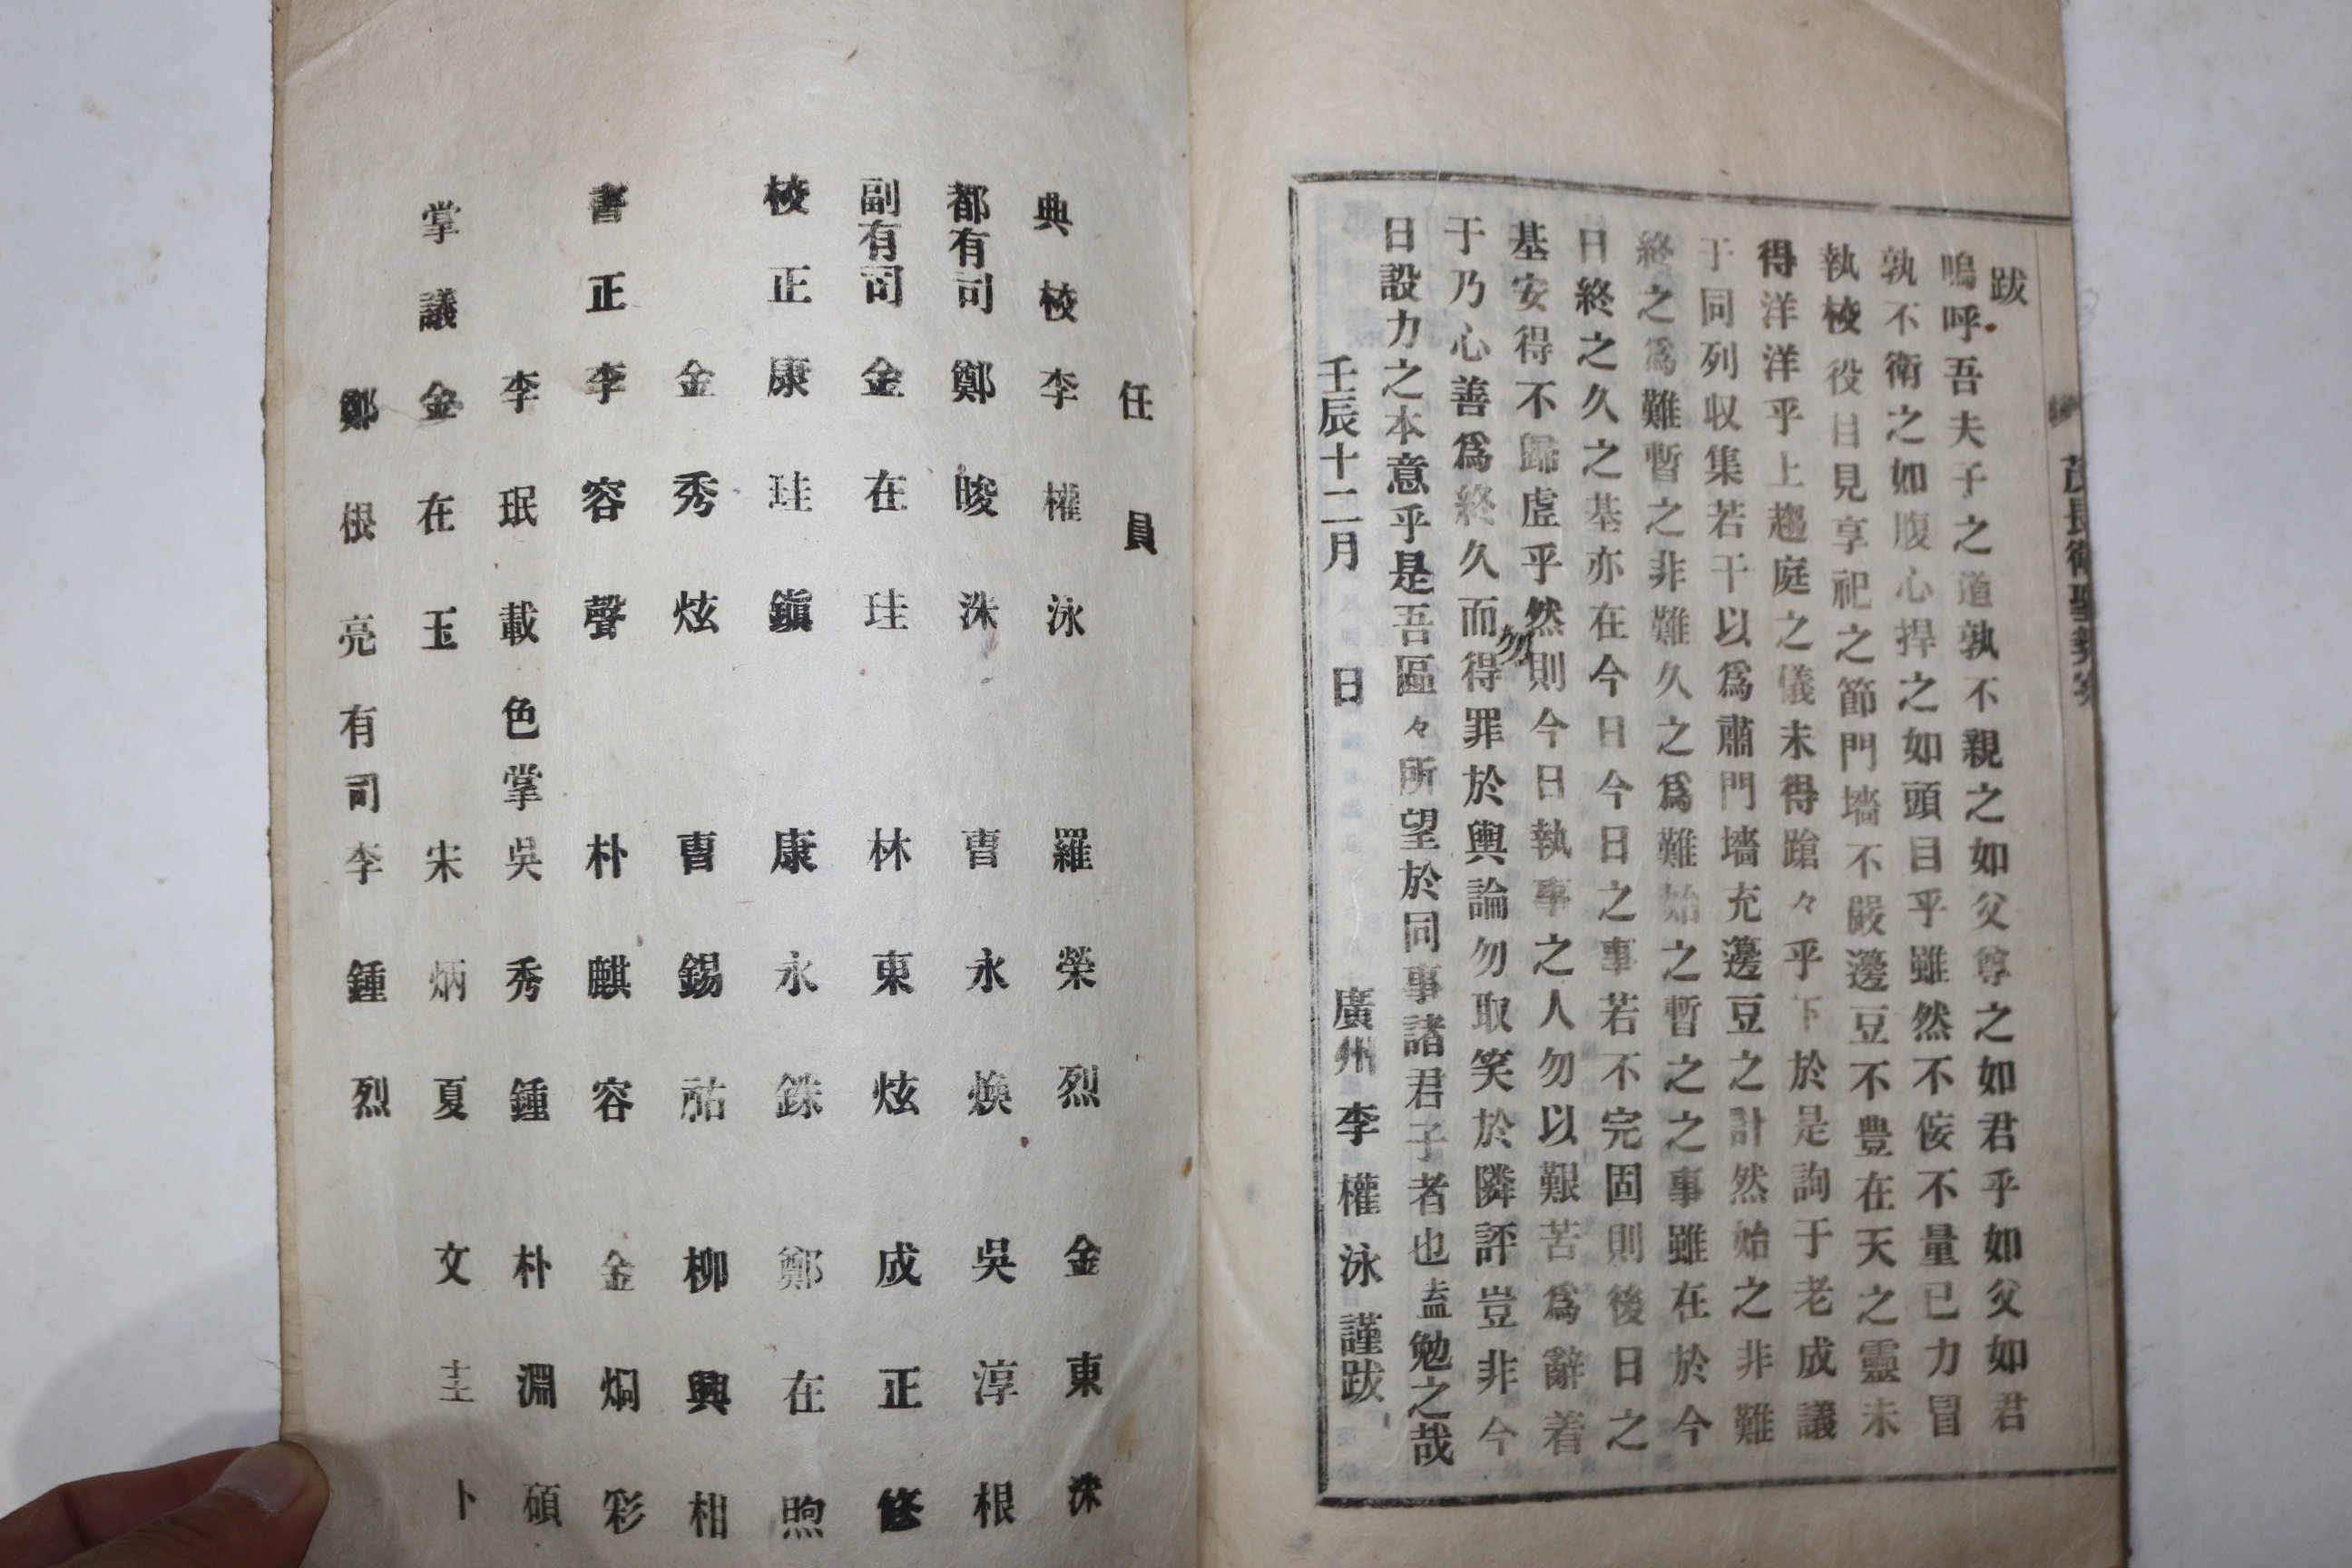 茂長衛聖契案
跋
嗚呼吾夫子之道孰不親之如父尊之如君乎如父如君
孰不衛之如腹心捍之如頭目乎雖然不侫不量已力冒
執校役目見享祀之節門墻不嚴籩豆不豊在天之靈未
得洋洋乎上趨庭之儀未得蹌々乎下於是詢于老成議
于同列収集若干以爲肅門墻充籩豆之計然始之非難
終之爲難暫之非難久之爲難始之暫之之事雖在於今
日終之久之基亦在今日今日之事若不完固則後日之
基安得不歸虛乎然則今日執事之人勿以艱苦爲辭着
于乃心善爲終久而勿得罪於輿論勿取笑於隣評豈非今
日設力之本意乎是吾區々所望於同事諸君子者也盍勉之哉
壬辰十二月 日 廣州 李權泳 謹跋
任員
典校 李權泳 羅榮烈 金東洙
都有司 鄭晙洙 曺永煥 吳淳根
副有司 金在珪 林東炫 成正修
校正 康珪鎭 康永銖 鄭在煦
金秀炫 曺錫祜 柳興相
書正 李容聲 朴麒容 金炯彩
李珉載 色掌 吳秀鍾 朴淵碩
掌議 金在玉 宋炳夏 文圭卜
鄭根亮 有司 李鍾烈